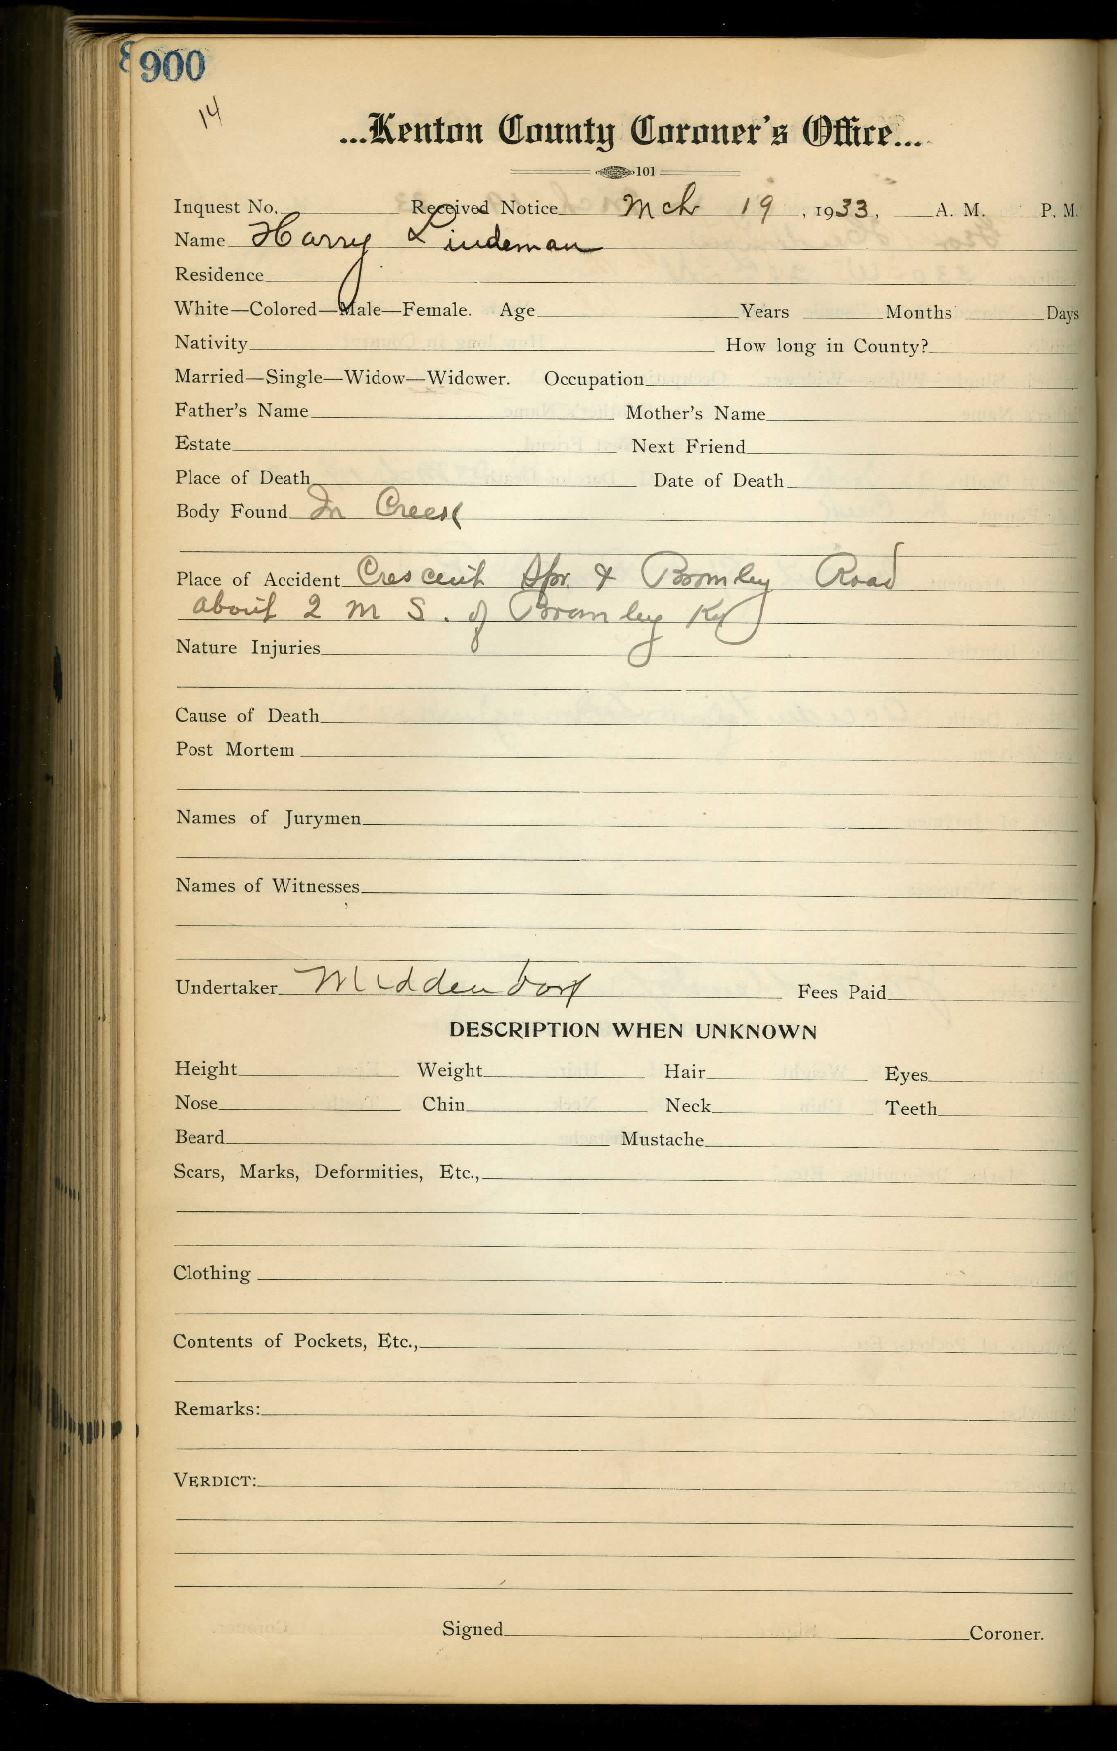 900
14
...Kenton County Coroner's Office...
101
Inquest No. Received Notice Mch 19, 1933, A. M. P. M.
Name Harry Lindeman
Residence
White—Colored—Male—Female. Age Years Months Days
Nativity How long in County?
Married—Single—Widow—Widower. Occupation
Father's Name Mother's Name
Estate Next Friend
Place of Death Date of Death
Body Found In Creek
Place of Accident Crescent Spr. & Bromley Road
about 2 M S. of Bromley Ky
Nature Injuries
Cause of Death
Post Mortem
Names of Jurymen
Names of Witnesses
Undertaker Middendorf Fees Paid
DESCRIPTION WHEN UNKNOWN
Height Weight Hair Eyes
Nose Chin Neck Teeth
Beard Mustache
Scars, Marks, Deformities, Etc.,
Clothing
Contents of Pockets, Etc.,
Remarks:
VERDICT:
Signed Coroner.